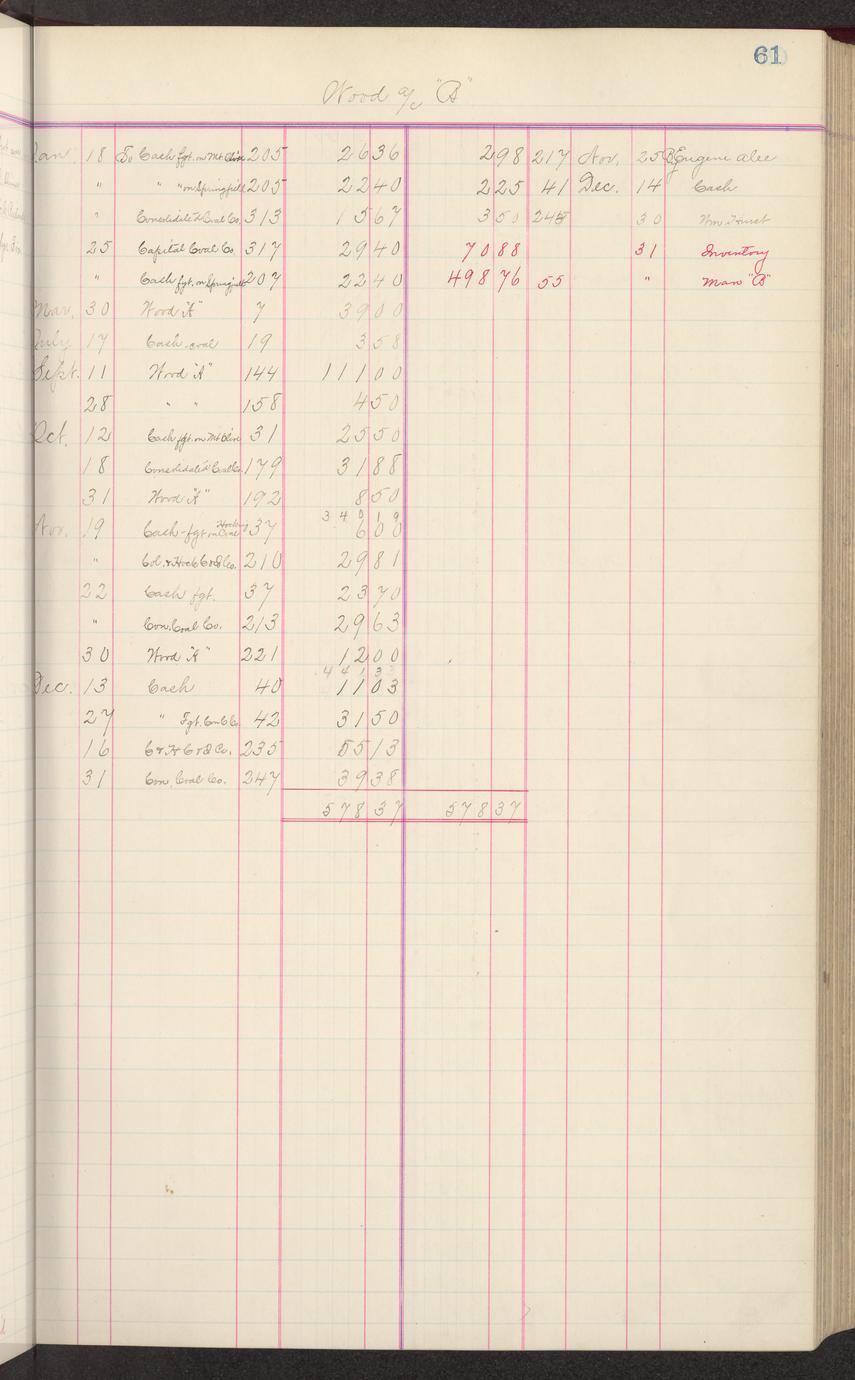 61
Wood a/c "B"
Jan. 18 To Cash fgt. on Mt. Olive 205 26 36 2 98 217 Nov. 25 By Eugene alee
" " " on Springfield 205 22 40 2 25 41 Dec. 14 Cash
" Consolidated Coal Co. 313 15 67 3 50 245 30 Wm
25 Capital Coal Co. 317 29 40 70 88 31 Inventory
" Cash fgt. on Springfield 207 22 40 498 76 55 " Man "B"
Mar. 30 Wood "A" 7 39 00
July 17 Cash-coal 19 3 58
Sept. 11 Wood "A" 144 111 00
28 " " 158 4 50
Oct. 12 Cash fgt. on Mt Olive 31 25 50
18 Consolidated Coal Co. 179 31 88
31 Wood "A" 192 8 50
340 19
Nov. 19 Cash-fgt on Hocking Coal 37 6 00
" Col. & Hock C & I Co. 210 29 81
22 Cash fgt. 37 23 70
" Con. Coal Co. 213 29 63
30 Wood "A" 221 12 00
441 33
Dec. 13 Cash 40 11 03
27 " Fgt. Con C Co. 42 31 50
16 C & H C & I Co. 235 55 13
31 Con. Coal Co. 247 39 38
578 37 578 37